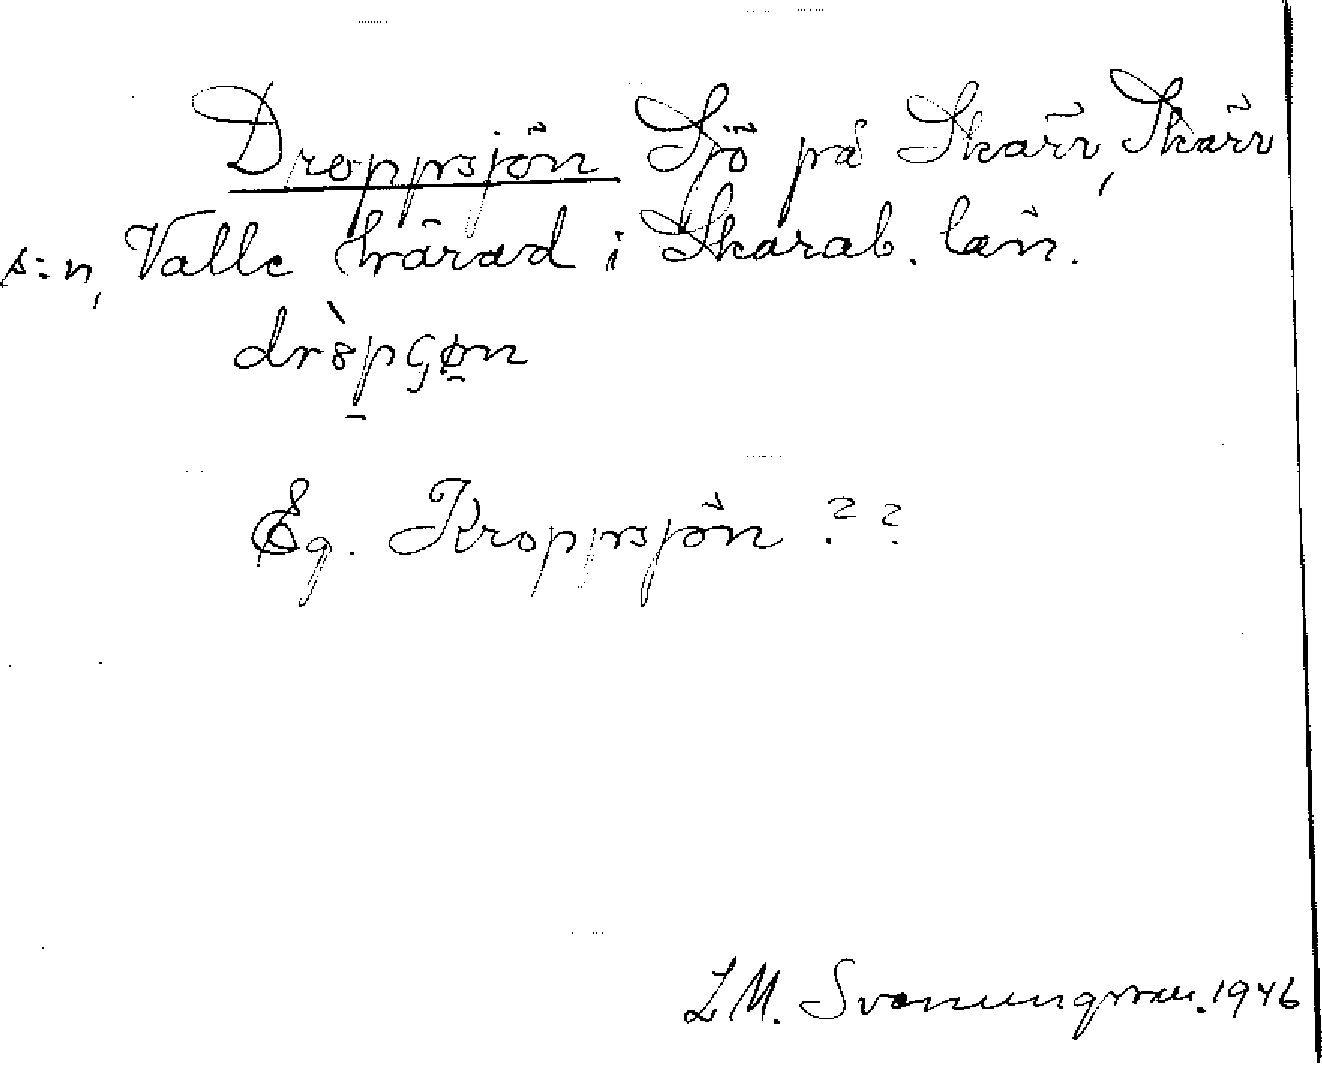 Droppsjön Sjö på Skärv, Skärv
s:n, Valle härad i Skarab. län.
Eg. Kroppsjön ? ?
L M. Svanungsson. 1946